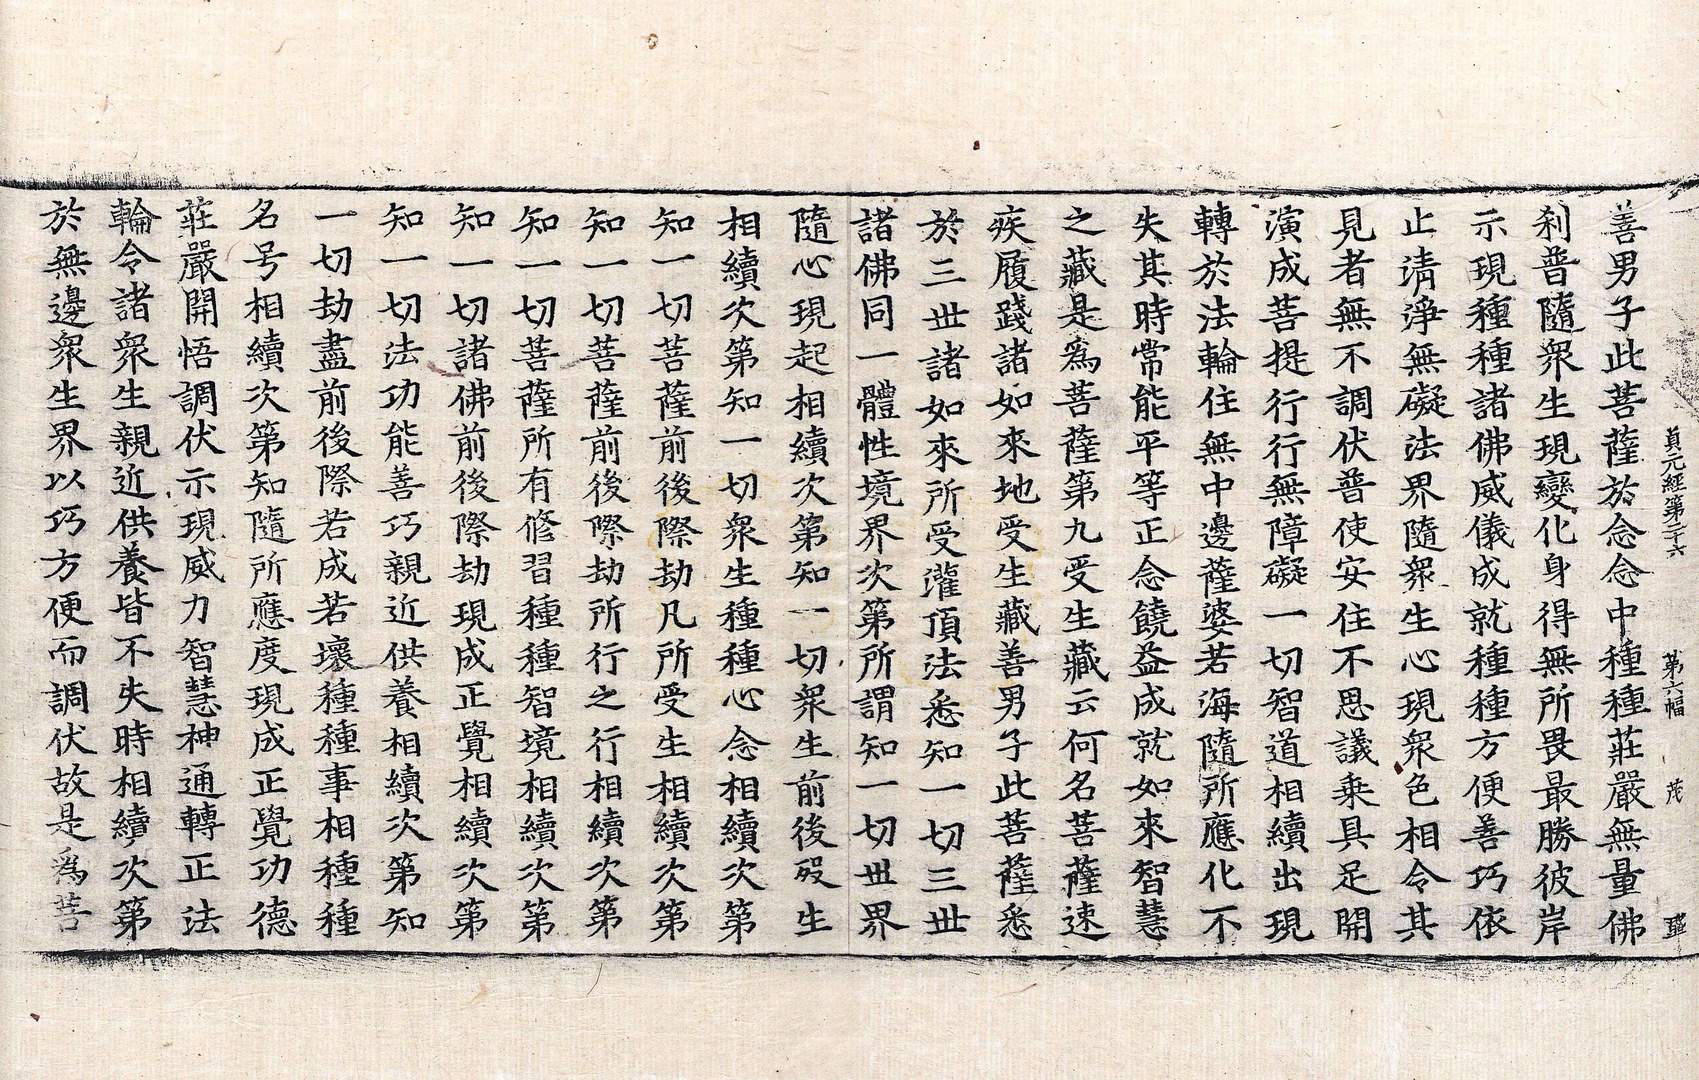 貞元經第二十六 第六幅 茂
善男子此菩薩於念念中種種莊嚴無量佛
刹普隨衆生現變化身得無所畏最勝彼岸
示現種種諸佛威儀成就種種方便善巧依
止清淨無礙法界隨衆生心現衆色相令其
見者無不調伏普使安住不思議乗具足開
演成菩提行行無障礙一切智道相續出現
轉於法輪住無中邊薩婆若海隨所應化不
失其時常能平等正念饒益成就如來智慧
之藏是爲菩薩第九受生藏云何名菩薩速
疾履踐諸如來地受生藏善男子此菩薩悉
於三世諸如來所受灌頂法悉知一切三世
諸佛同一體性境界次第所謂知一切世界
隨心現起相續次第知一切衆生前後殁生
相續次第知一切衆生種種心念相續次第
知一切菩薩前後際劫凡所受生相續次第
知一切菩薩前後際劫所行之行相續次第
知一切菩薩所有修習種種智境相續次第
知一切諸佛前後際劫現成正覺相續次第
知一切法功能善巧親近供養相續次第知
一切劫盡前後際若成若壞種種事相種種
名号相續次第知隨所應度現成正覺功德
莊嚴開悟調伏示現威力智慧神通轉正法
輪令諸衆生親近供養皆不失時相續次第
於無邊衆生界以巧方便而調伏故是爲菩